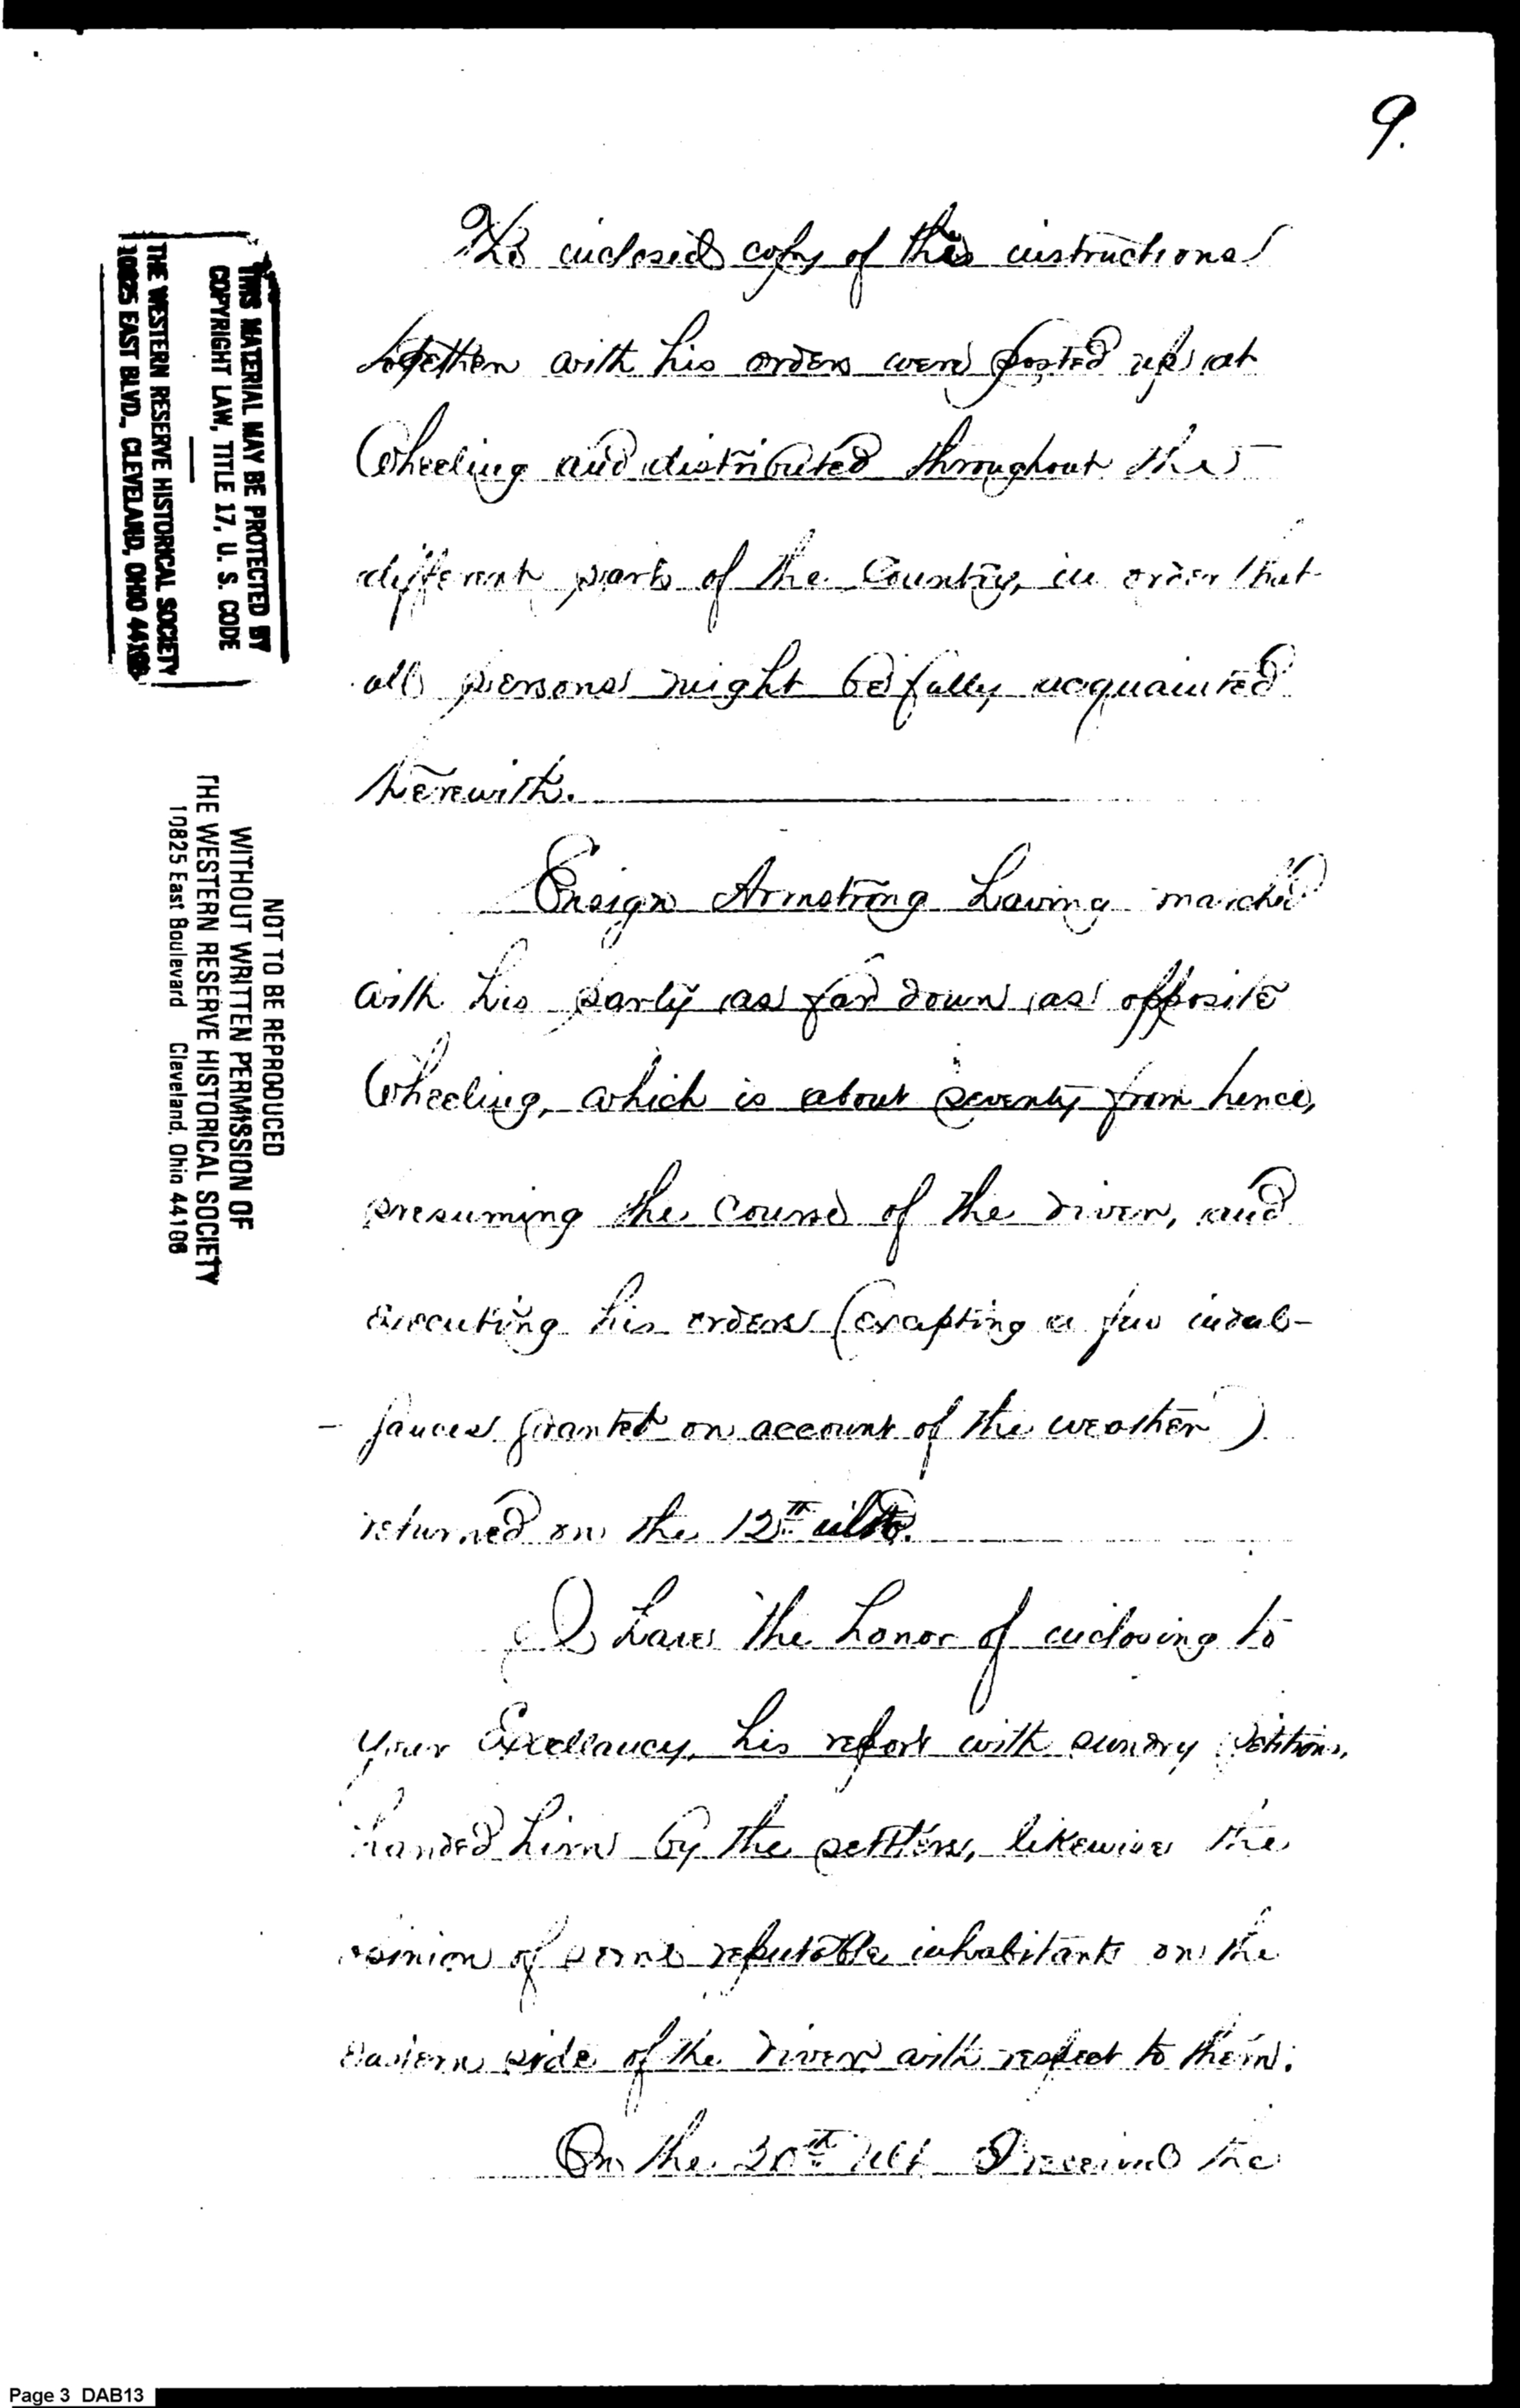 9.
The inclosed copy of this instructions
together with his orders were posted up at
Wheeling and distributed throughout the
different parts of the Country, in order that
all persons might be fully acquainted
herewith.
Ensign Armstrong having marched
with his party as far down as opposite
Wheeling, which is about seventy from hence,
presuming the course of the river, and
executing his orders (excepting a few indul-
-gances granted on account of the weather)
returned on the 12th ulto.
I have the honor of inclosing to
your Excellancy, his report with sundry petitions,
handed him by the settlers, likewise the
opinion of some reputable inhabitants on the
eastern side of the river with respect to them.
On the 20th ult I received the
THIS MATERIAL MAY BE PROTECTED BY
COPYRIGHT LAW, TITLE 17, U. S. CODE
THE WESTERN RESERVE HISTORICAL SOCIETY
10825 EAST BLVD., CLEVELAND, OHIO 44106
NOT TO BE REPRODUCED
WITHOUT WRITTEN PERMISSION OF
THE WESTERN RESERVE HISTORICAL SOCIETY
10825 East Boulevard Cleveland, Ohio 44106
Page 3 DAB13